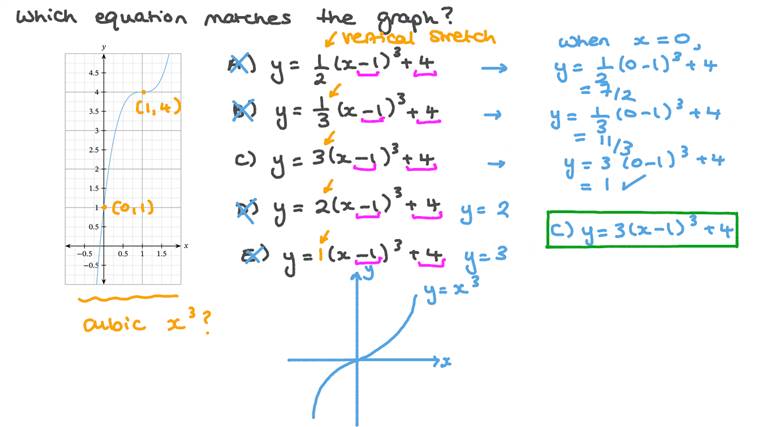 Which equation matches the graph?
vertical stretch
A) y = 1/2 (x-1)³ + 4 →
B) y = 1/3 (x-1)³ + 4 →
C) y = 3(x-1)³ + 4 →
D) y = 2(x-1)³ + 4 y = 2
E) y = 1(x-1)³ + 4 y = 3
when x = 0,
y = 1/2 (0-1)³ + 4
= 7/2
y = 1/3 (0-1)³ + 4
= 11/3
y = 3 (0-1)³ + 4
= 1 ✓
C) y = 3(x-1)³ + 4
y
4.5
4
3.5
3
2.5
2
1.5
1
0.5
−0.5
−0.5 0.5 1 1.5 x
(1,4)
(0,1)
cubic x³?
y
y = x³
x